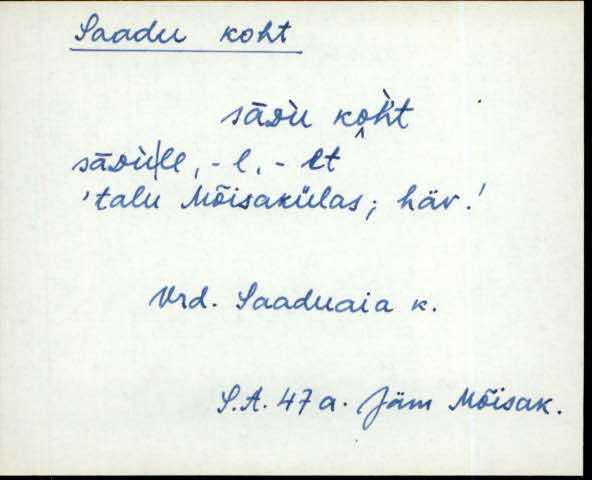 Saadu koht
sāᴅù koh̀t
sāᴅù|le, -l, -lt
'talu Mõisakülas; häv.'
Vrd. Saaduaia k.
S.A. 47 a. Jäm Mõisak.